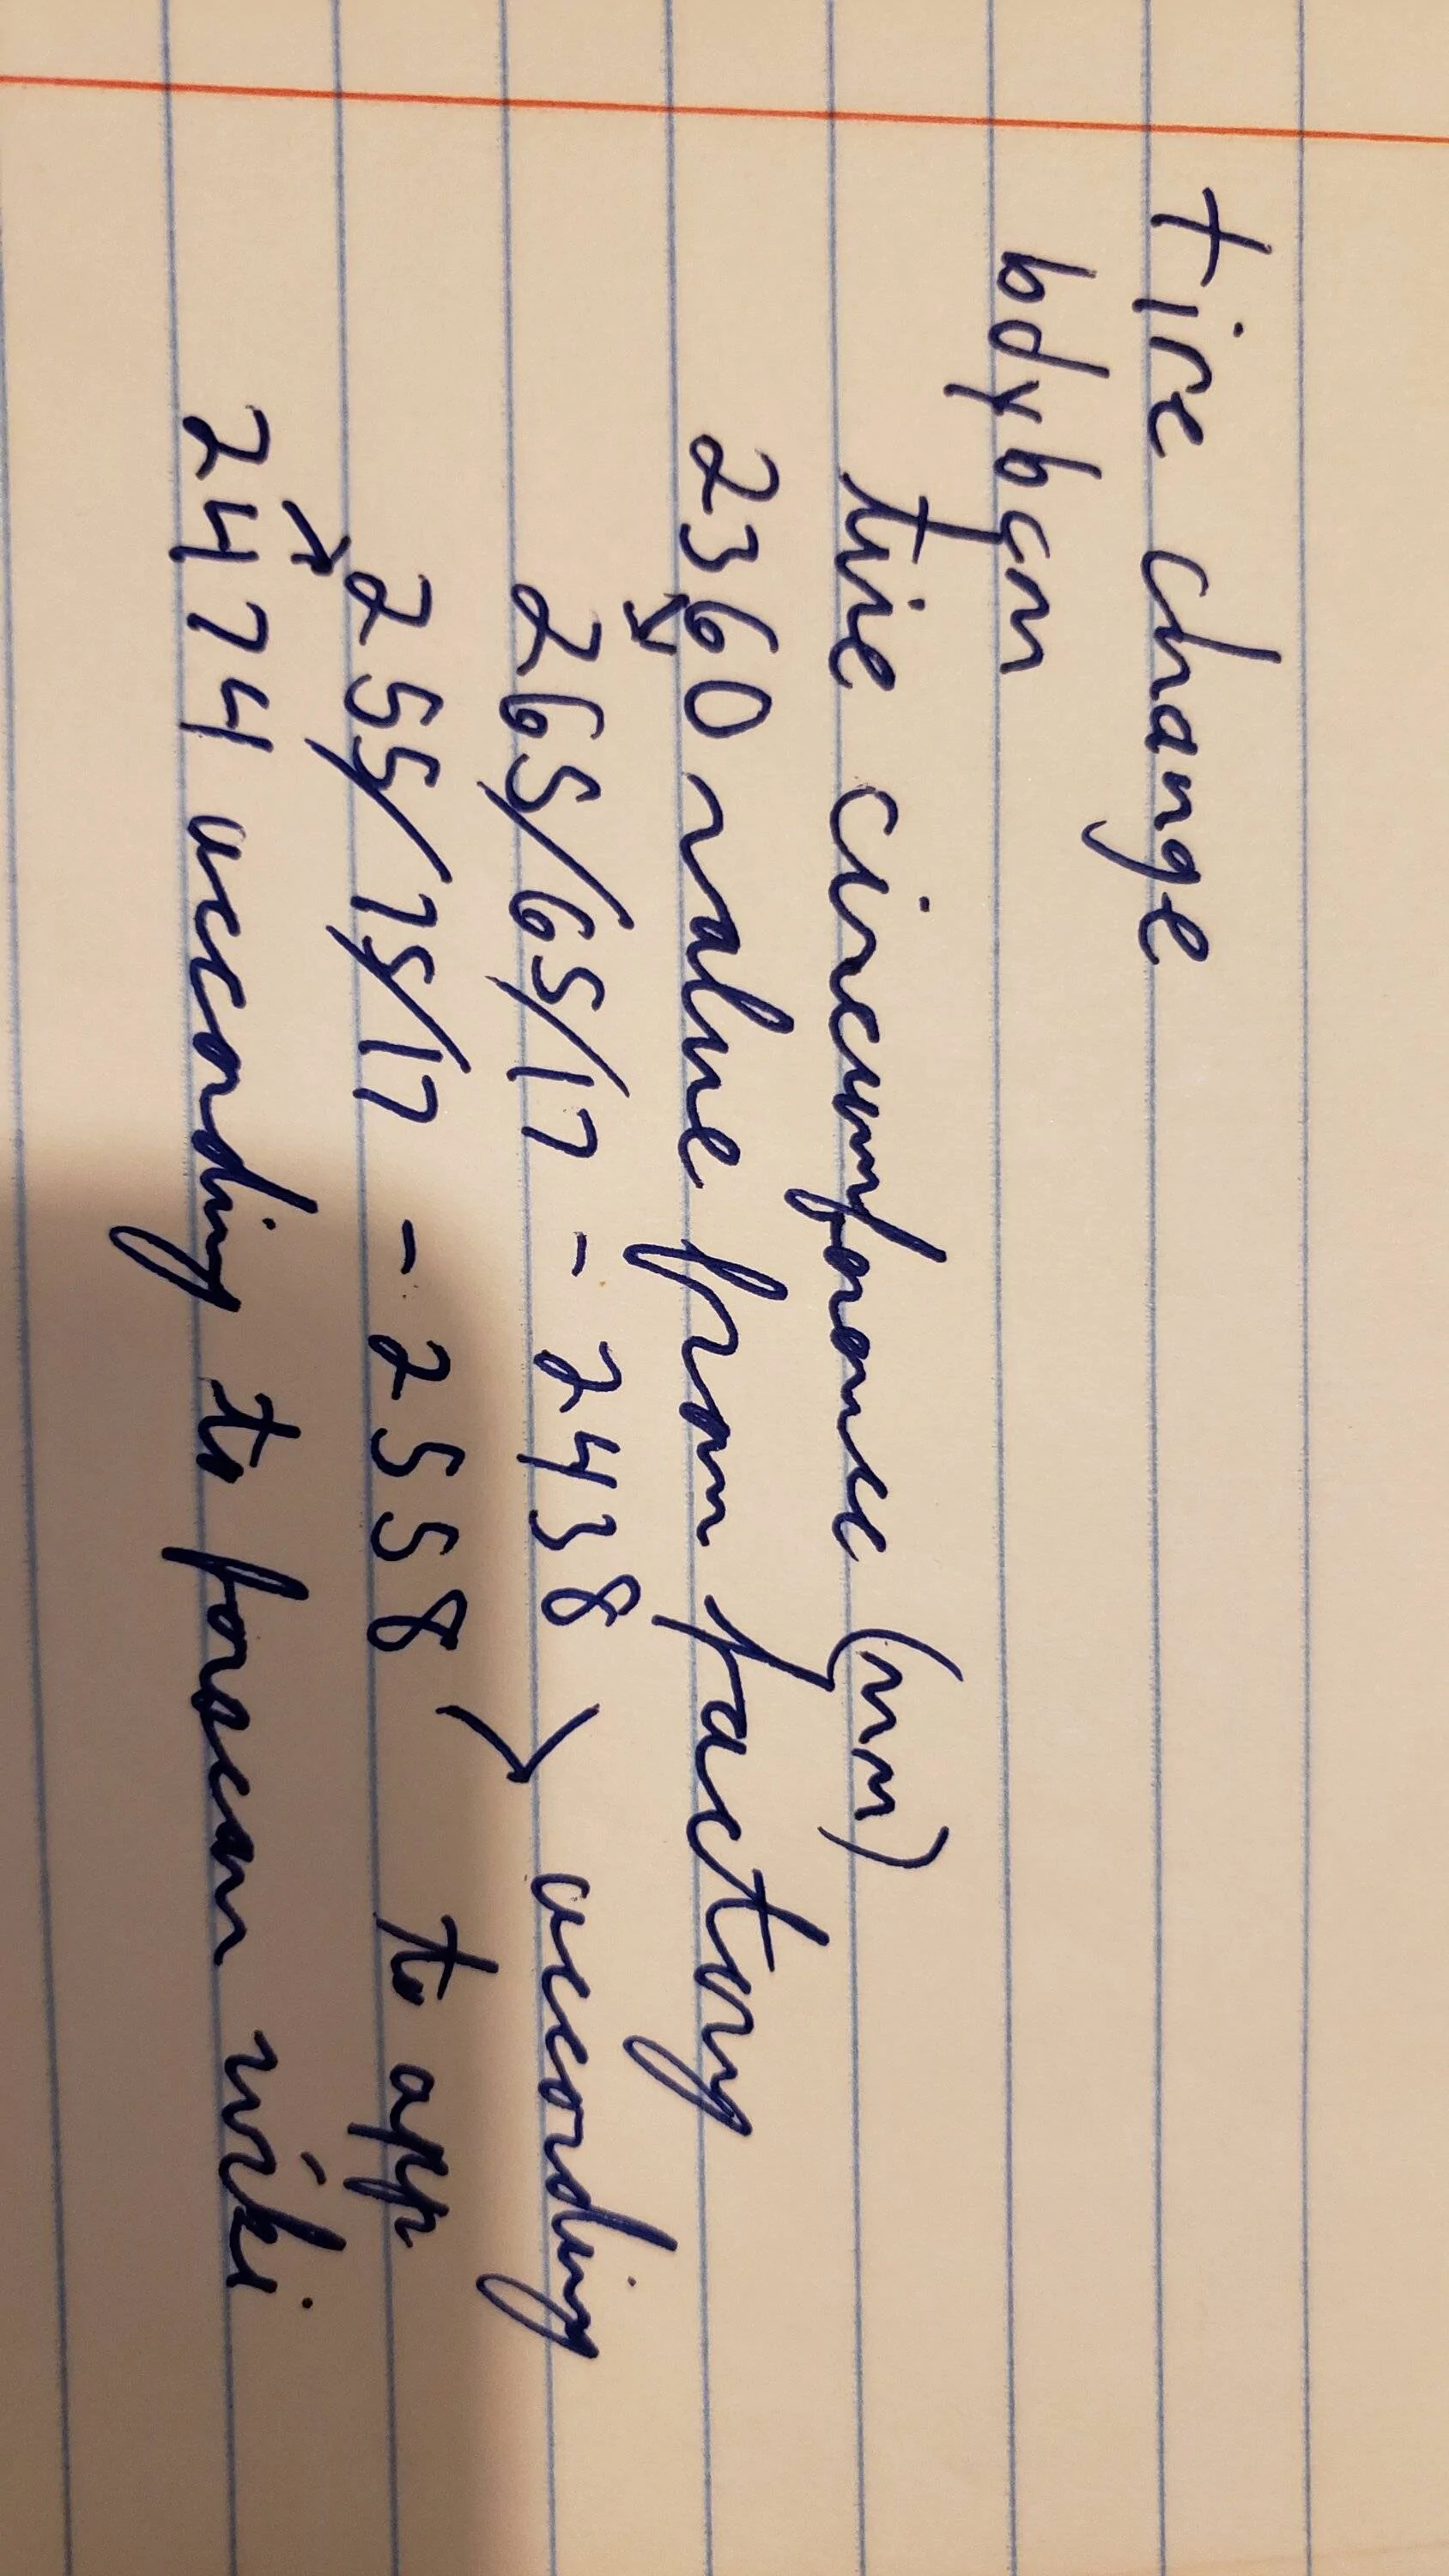 tire change
bdybcm
tire circumference (mm)
2360 value from factory
↘ 265/65/17 - 2438 > according
255/75/17 - 2558 to app
2474 according to forscan wiki